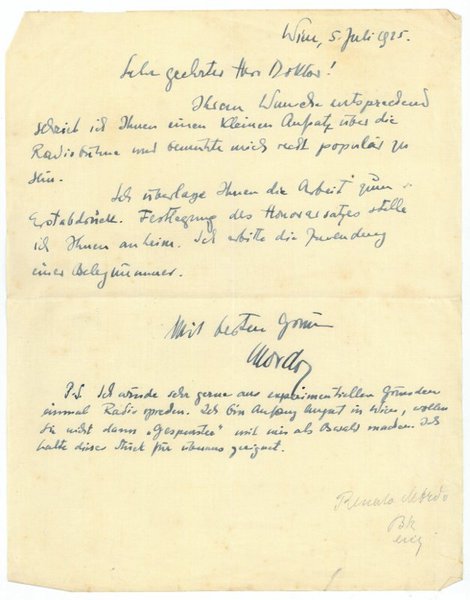 Wien, 5. Juli 1925.
Sehr geehrter Herr Doktor!
Ihrem Wunsche entsprechend
schrieb ich Ihnen einen kleinen Aufsatz über die
Radiobühne und bemühte mich recht populär zu
sein.
Ich überlasse Ihnen die Arbeit zum
Erstabdruck. Festlegung des Honorarsatzes stelle
ich Ihnen anheim. Ich erbitte die Zusendung
einer Belegnummer.
Mit besten Grüßen
Mordo
P.S. Ich würde sehr gerne aus experimentellen Gründen
einmal Radio sprechen. Ich bin Anfang August in Wien, wollen
Sie nicht dann „Gespenster" mit mir als Oswald machen. Ich
halte dieses Stück für überaus geeignet.
Renato Mordo